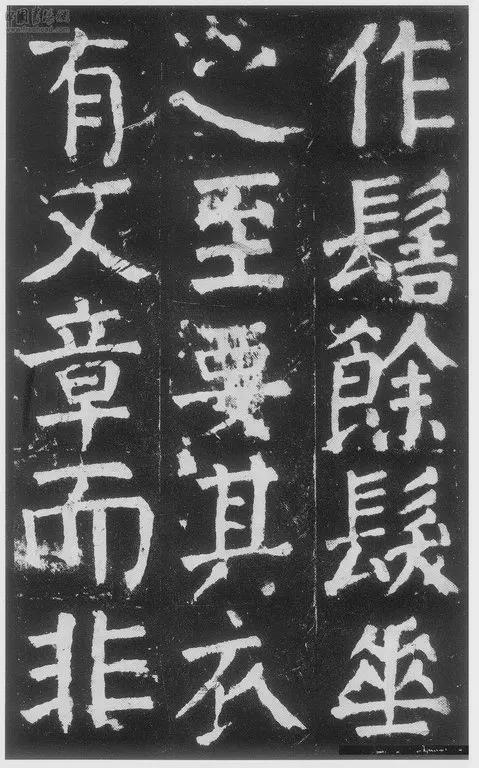 作髻餘髮垂
之至要其衣
有文章而非